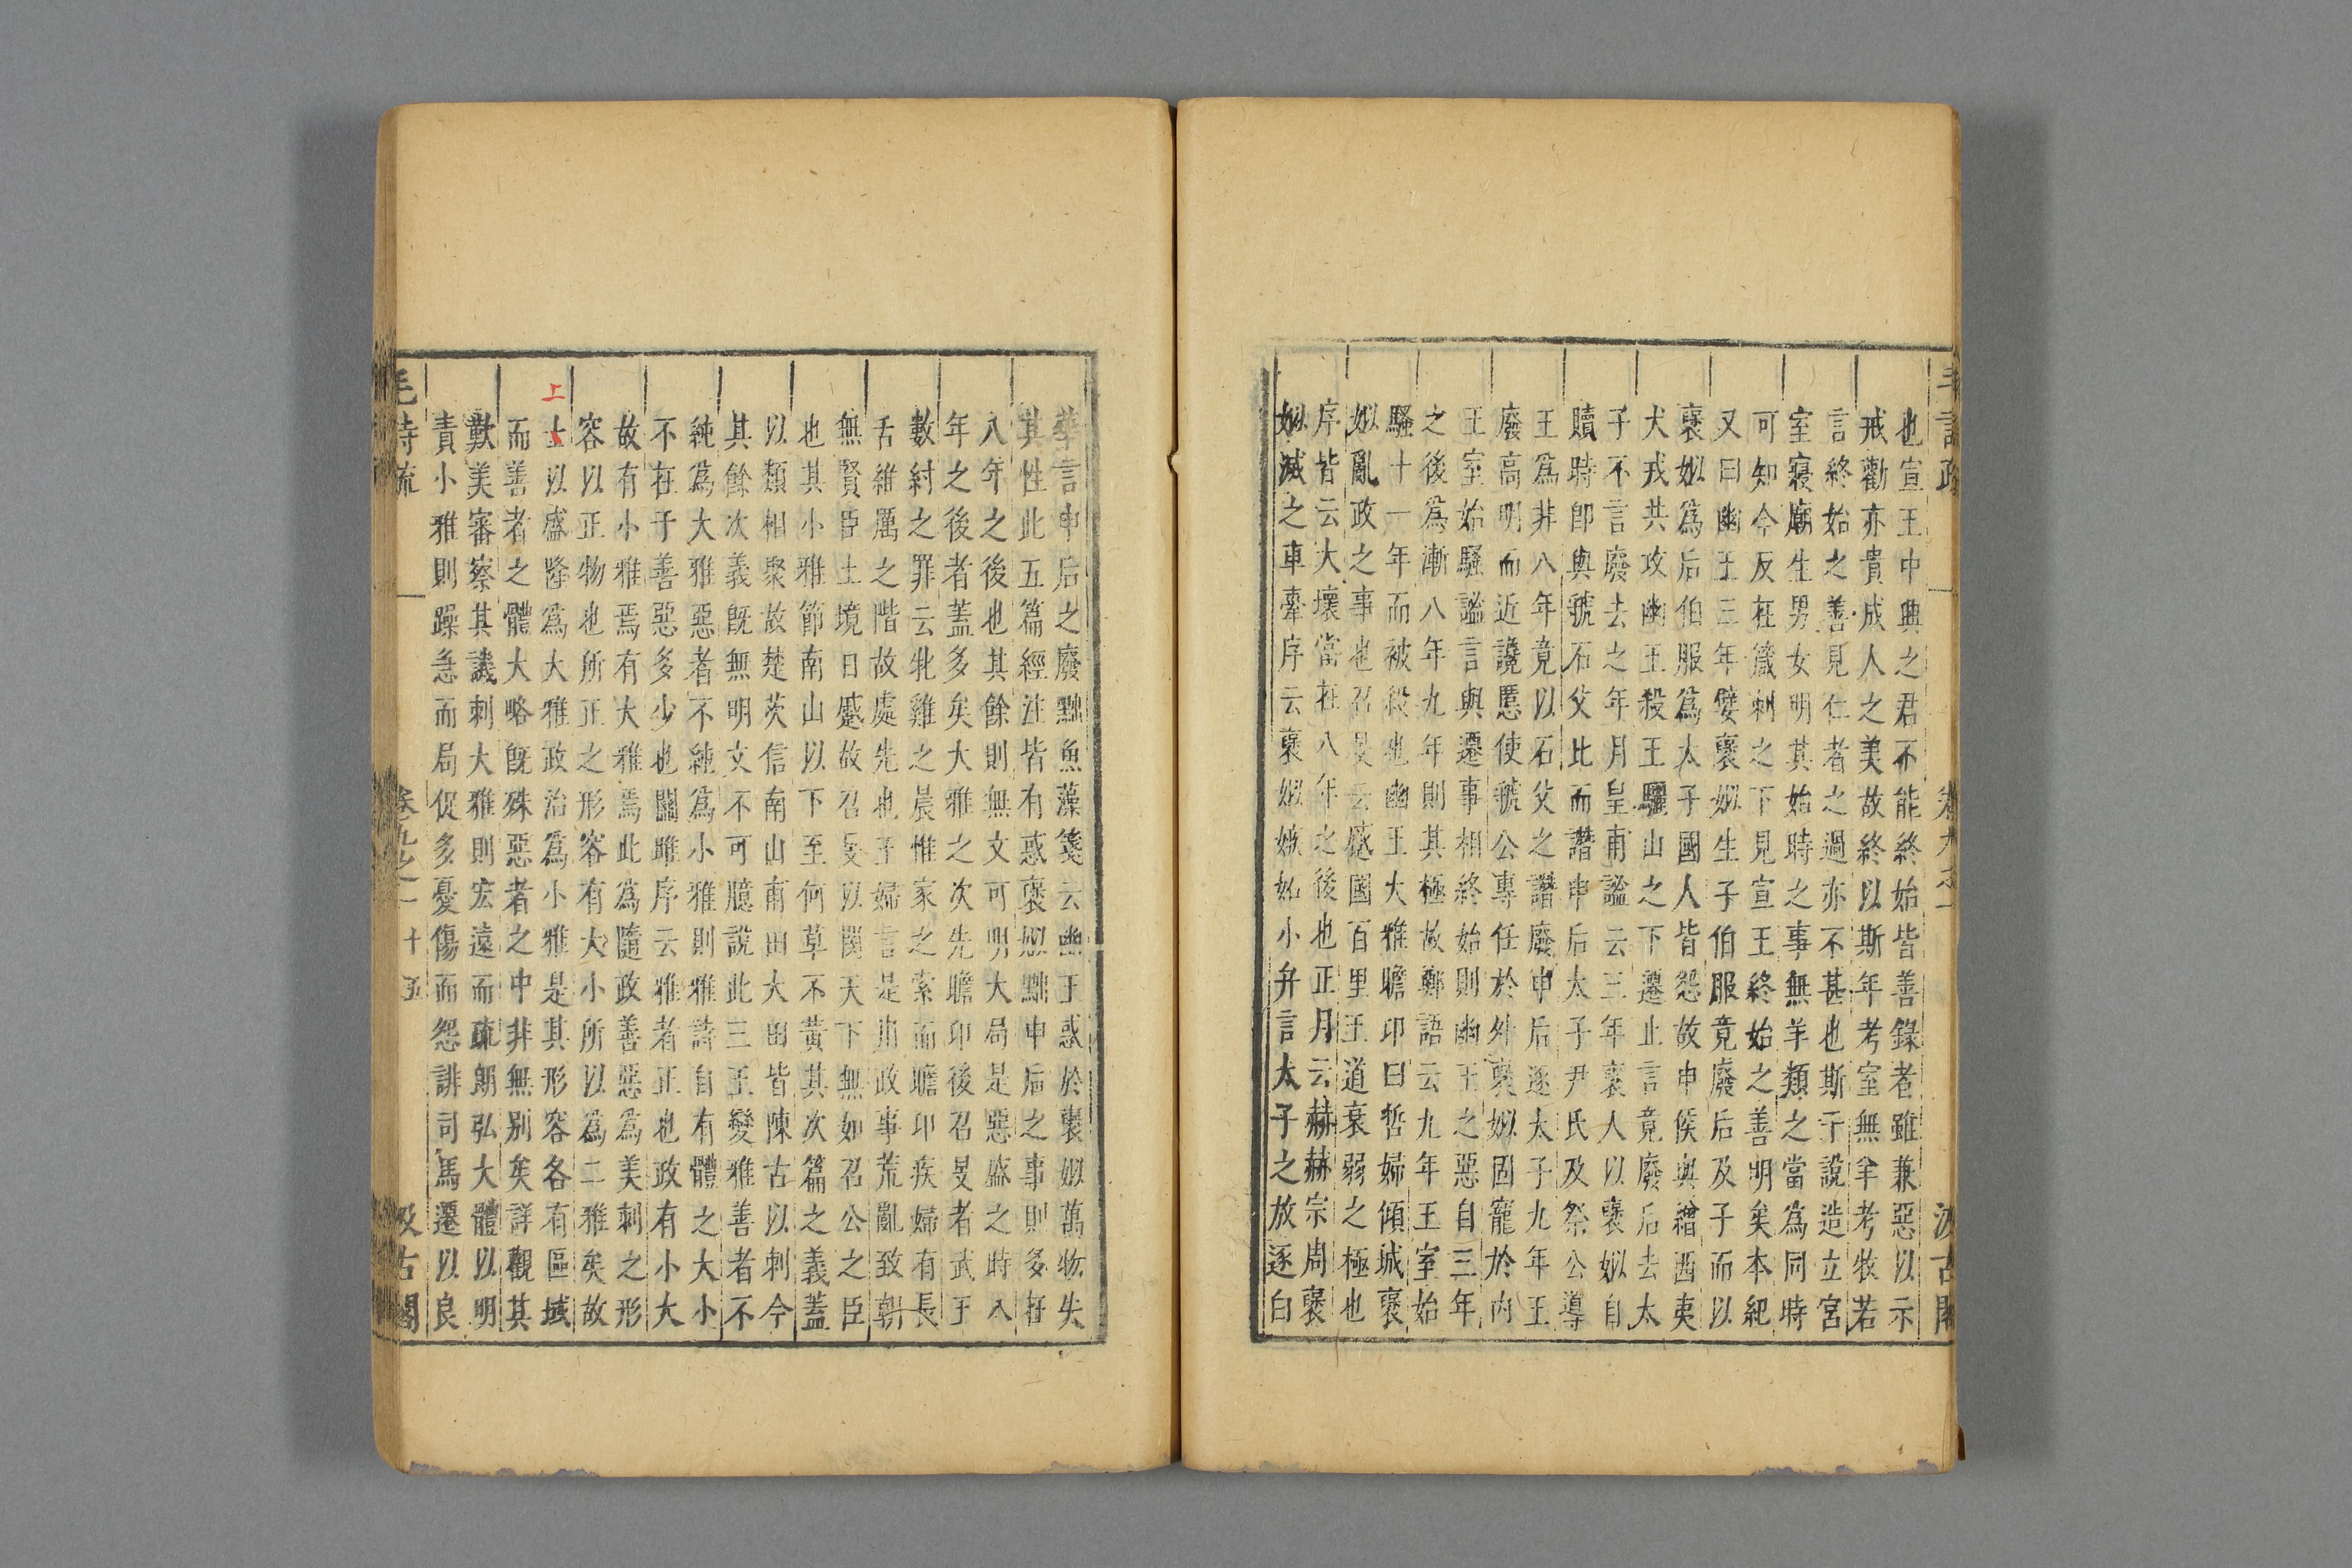 也宣王中興之君不能終始皆善錄者雖兼惡以示
戒勸亦貴成人之美故終以斯年考室無羊考牧若
言終始之善見仁者之過亦不甚也斯干說造立宮
室寢廟生男女明其始時之事無羊類之當為同時
可知今反在箴刺之下見宣王終始之善明矣本紀
又曰幽王三年嬖襃姒生子伯服竟廢后及子而以
襃姒為后伯服為太子國人皆怨故申侯與繒西夷
犬戎共攻幽王殺王驪山之下遷止言竟廢后去太
子不言廢去之年月皇甫謐云三年襃人以襃姒自
贖時卽與虢石父比而譖申后太子尹氏及祭公導
王為非八年竟以石父之譖廢申后逐太子九年王
廢高明而近讒慝使虢公專任於外襃姒固寵於內
王室始騷謐言與遷事相終始則幽王之惡自三年
之後為漸八年九年則其極故鄭語云九年王室始
騷十一年而被殺也幽王大雅瞻卬曰哲婦傾城襃
姒亂政之事也召旻云蹙國百里王道衰弱之極也
序皆云大壞當在八年之後也正月云赫赫宗周襃
姒滅之車舝序云襃姒嫉妬小弁言太子之放逐白
華言申后之廢黜魚藻箋云幽王惑於襃姒萬物失
其性此五篇經注皆有惑襃姒黜申后之事則多在
八年之後也其餘則無文可明大局是惡盛之時八
年之後者蓋多矣大雅之次先瞻卬後召旻者武王
數紂之罪云牝雞之晨惟家之索而瞻卬疾婦有長
舌維厲之階故處先也王婦言是用政事荒亂致朝
無賢臣土境日蹙故召旻以閔天下無如召公之臣
也其小雅節南山以下至何草不黃其次篇之義蓋
以類相聚故楚茨信南山甫田大田皆陳古以刺今
其餘次義旣無明文不可臆說此三王變雅善者不
純為大雅惡者不純為小雅則雅詩自有體之大小
不在于善惡多少也關雎序云雅者正也政有小大
故有小雅焉有大雅焉此為隨政善惡為美刺之形
容以正物也所正之形容有大小所以為二雅矣故
上以盛隆為大雅政治為小雅是其形容各有區域
而善者之體大略旣殊惡者之中非無别矣詳觀其
歎美審察其譏刺大雅則宏遠而疏朗弘大體以明
責小雅則躁急而局促多憂傷而怨誹司馬遷以良
毛詩疏 卷九之一 十五 汲古閣